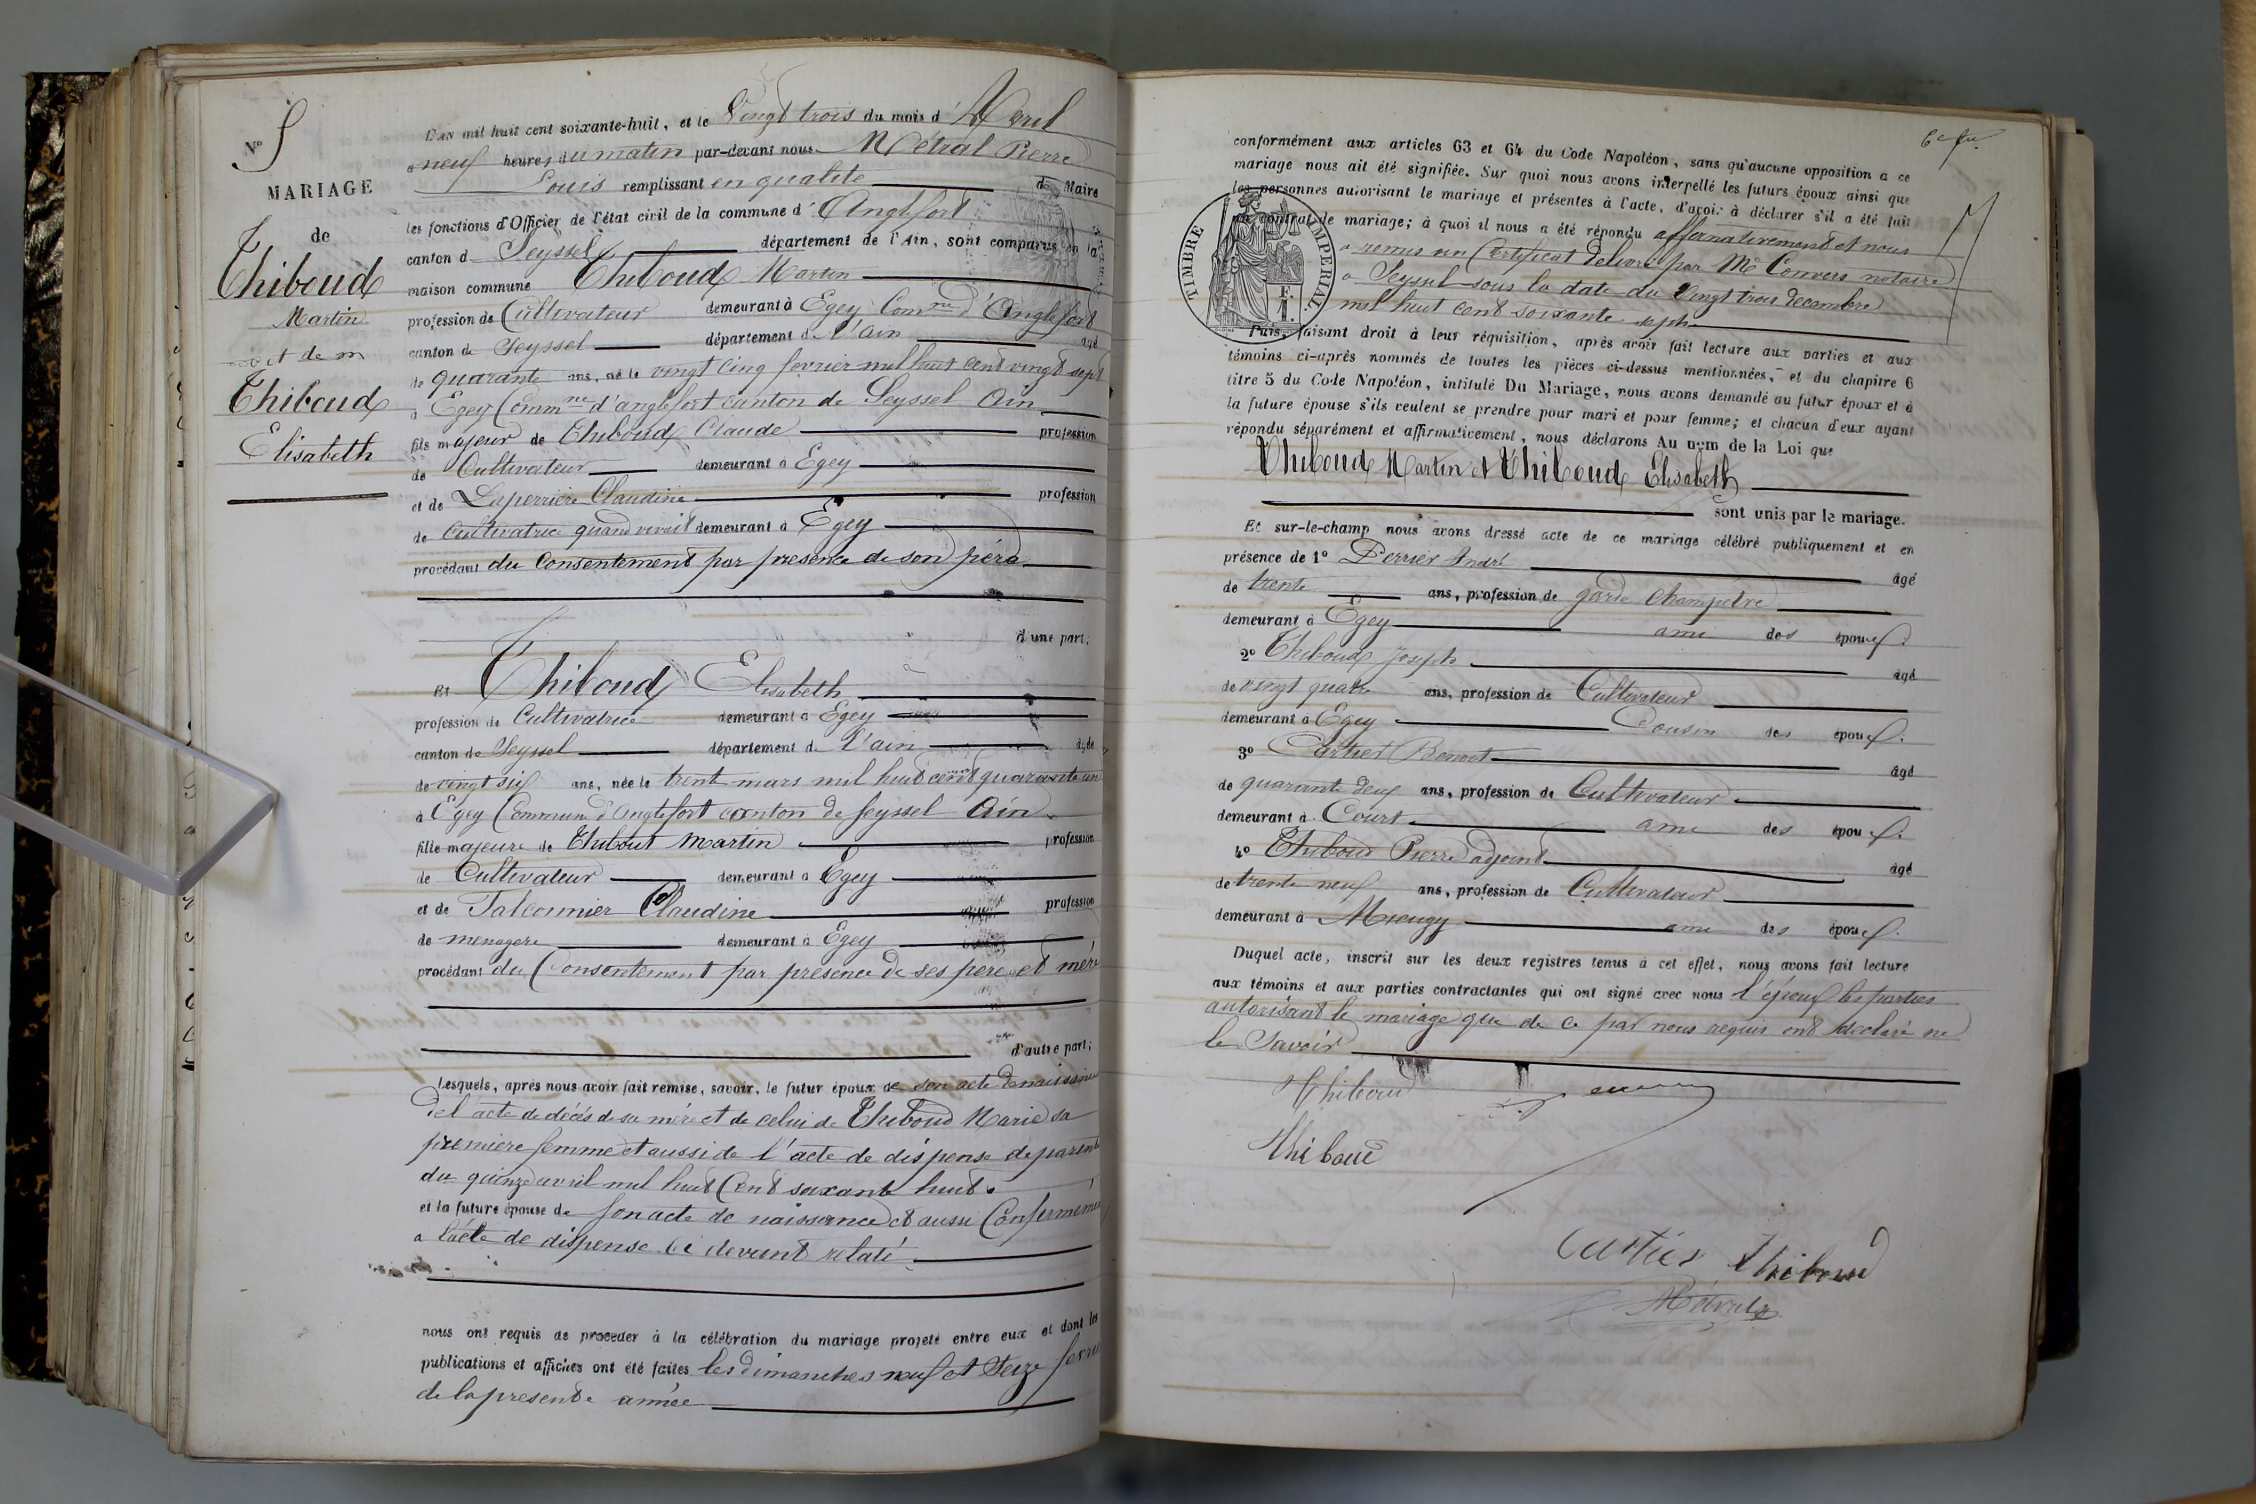 N° 5
MARIAGE
de
Thiboud
Martin
et de
Thiboud
Elisabeth
L'AN mil huit cent soixante-huit, et le Vingt trois du mois d'Avril
a neuf heures du matin par-devant nous Métral Pierre
Louis remplissant en qualité de Maire
les fonctions d'Officier de l'état civil de la commune d'Anglefort
canton d Seyssel département de l'Ain, sont comparus en la
maison commune Thiboud Martin
profession de Cultivateur demeurant à Egey Comne d'Anglefort
canton de Seyssel département de l'ain agé
de quarante ans, né le vingt cinq fevrier mil huit cent vingt sept
à Egey Commne d'anglefort canton de Seyssel Ain
fils majeur de Thiboud Claude profession
de Cultivateur demeurant à Egey
et de Laperrière Claudine profession
de Cultivatrice quand vivait demeurant à Egey
procédant du Consentement par presence de son père
d'une part;
Et Thiboud Elisabeth
profession de Cultivatrice demeurant à Egey
canton de Seyssel département de l'ain agée
de vingt six ans, née le trent mars mil huit cent quarante un
à Egey Commune d'Anglefort canton de Seyssel Ain
fille majeure de Thibout Martin profession
de Cultivateur demeurant à Egey
et de Falconnier Claudine profession
de menagere demeurant à Egey
procédant du Consentement par presence de ses pere et mère
d'autre part;
Lesquels, après nous avoir fait remise, savoir, le futur époux de son acte de naissance
de l'acte de décès de sa mère et de celui de Thiboud Marie sa
premiere femme et aussi de l'acte de dispense de parenté
du quinze avril mil huit Cent soixante huit
et la future épouse de son acte de naissance et aussi Conformément
a l'acte de dispense ci devant relaté
nous ont requis de proceder à la célébration du mariage projeté entre eux et dont les
publications et affiches ont été faites les dimanches neuf et Seize fevrier
de la presente année
6e fu
conformément aux articles 63 et 64 du Code Napoléon, sans qu'aucune opposition a ce
mariage nous ait été signifiée. Sur quoi nous avons interpellé les futurs époux ainsi que
les personnes autorisant le mariage et présentes à l'acte, d'avoir à déclarer s'il a été fait
un contrat de mariage; à quoi il nous a été répondu affirmativement et nous
a remis un Certificat delivré par Me Convers notaire
a Seyssel sous la date du Vingt trois decembre
mil huit cent soixante sept
TIMBRE IMPERIAL
1 F.
Puis, faisant droit à leur réquisition, après avoir fait lecture aux parties et aux
témoins ci-après nommés de toutes les pièces ci-dessus mentionnées, et du chapitre 6
titre 5 du Code Napoléon, intitulé Du Mariage, nous avons demandé au futur époux et à
la future épouse s'ils veulent se prendre pour mari et pour femme; et chacun d'eux ayant
répondu séparément et affirmativement, nous déclarons Au nom de la Loi que
Thiboud Martin et Thiboud Elisabeth
sont unis par le mariage.
Et sur-le-champ nous avons dressé acte de ce mariage célébré publiquement et en
présence de 1° Perrier André âgé
de trente ans, profession de garde Champêtre
demeurant à Egey ami des époux.
2° Thiboud Joseph âgé
de vingt quatre ans, profession de Cultivateur
demeurant à Egey Cousin des époux.
3° Cartier Benoit âgé
de quarante deux ans, profession de Cultivateur
demeurant à Court ami des époux.
4° Thiboud Pierre adjoint âgé
de trente neuf ans, profession de Cultivateur
demeurant à Mieugy ami des époux.
Duquel acte, inscrit sur les deux registres tenus à cet effet, nous avons fait lecture
aux témoins et aux parties contractantes qui ont signé avec nous l'époux les parties
autorisant le mariage que de ce par nous requis ont declaré ne
le Savoir
Thiboud
Thiboud
Cartier Thiboud
Métral